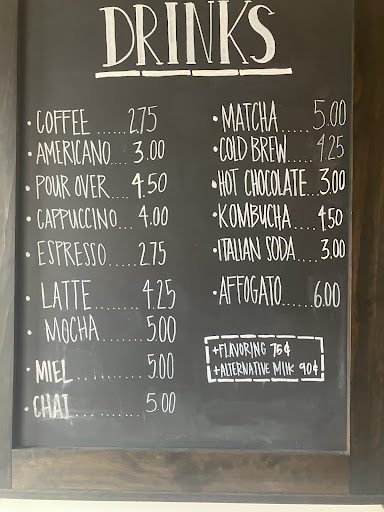 DRINKS
• COFFEE ...... 2.75
• AMERICANO .... 3.00
• POUR OVER .... 4.50
• CAPPUCCINO ... 4.00
• ESPRESSO ..... 2.75
• LATTE ........ 4.25
• MOCHA ........ 5.00
• MIEL .......... 5.00
• CHAI .......... 5.00
• MATCHA ..... 5.00
• COLD BREW .... 4.25
• HOT CHOCOLATE ... 3.00
• KOMBUCHA .... 4.50
• ITALIAN SODA .... 3.00
• AFFOGATO ...... 6.00
+FLAVORING 75¢
+ALTERNATIVE MILK 90¢